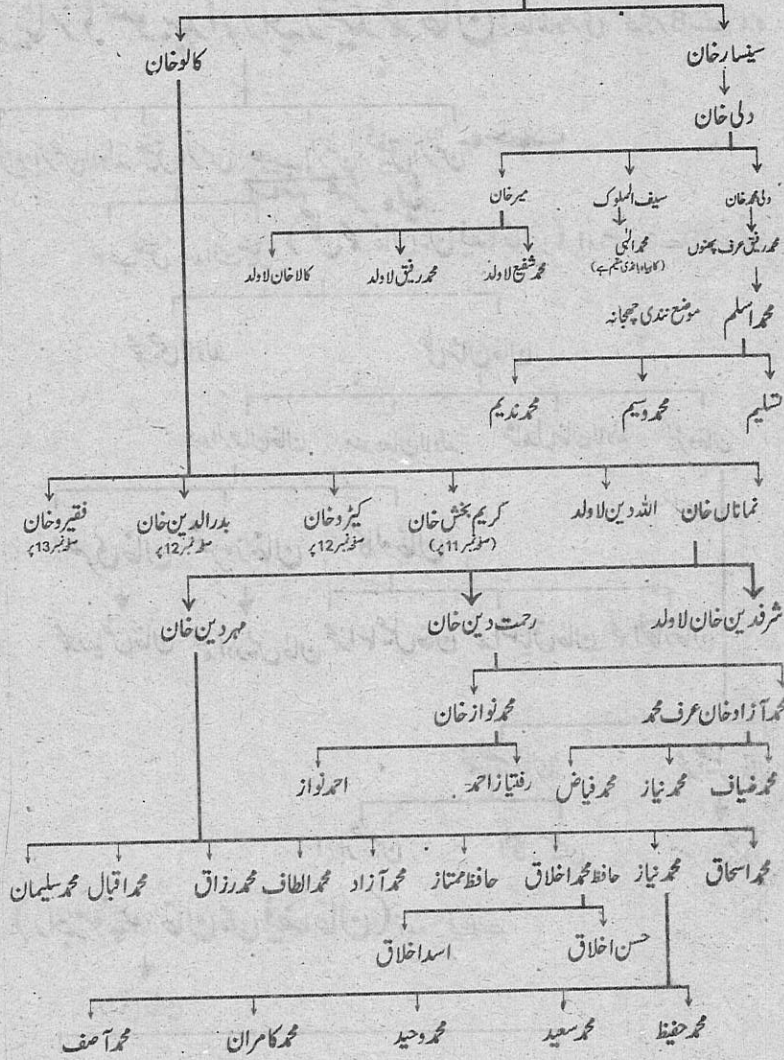 سینسار خان کالو خان
دلی خان
ولی محمد خان سیف الملوک میر خان
محمد رفیق عرف پھنوں محمد الٰہی محمد شفیع لاولد محمد رفیق لاولد کالا خان لاولد
محمد اسلم موضع نندی چھجانہ
تسلیم محمد وسیم محمد ندیم
نماناں خان اللہ دین لاولد کریم بخش خان کیڑو خان بدر الدین خان فقیرو خان
(صفحہ نمبر 11 پر) صفحہ نمبر 12 پر صفحہ نمبر 12 پر صفحہ نمبر 13 پر
شرفدین خان لاولد رحمت دین خان مہر دین خان
محمد آزاد خان عرف محمد محمد نواز خان
محمد ضیاف محمد نیاز محمد فیاض رفتیاز احمد احمد نواز
محمد اسحاق محمد نیاز حافظ محمد اخلاق حافظ ممتاز محمد آزاد محمد الطاف محمد رزاق محمد اقبال محمد سلیمان
حسن اخلاق اسد اخلاق
محمد حفیظ محمد سعید محمد وحید محمد کامران محمد آصف